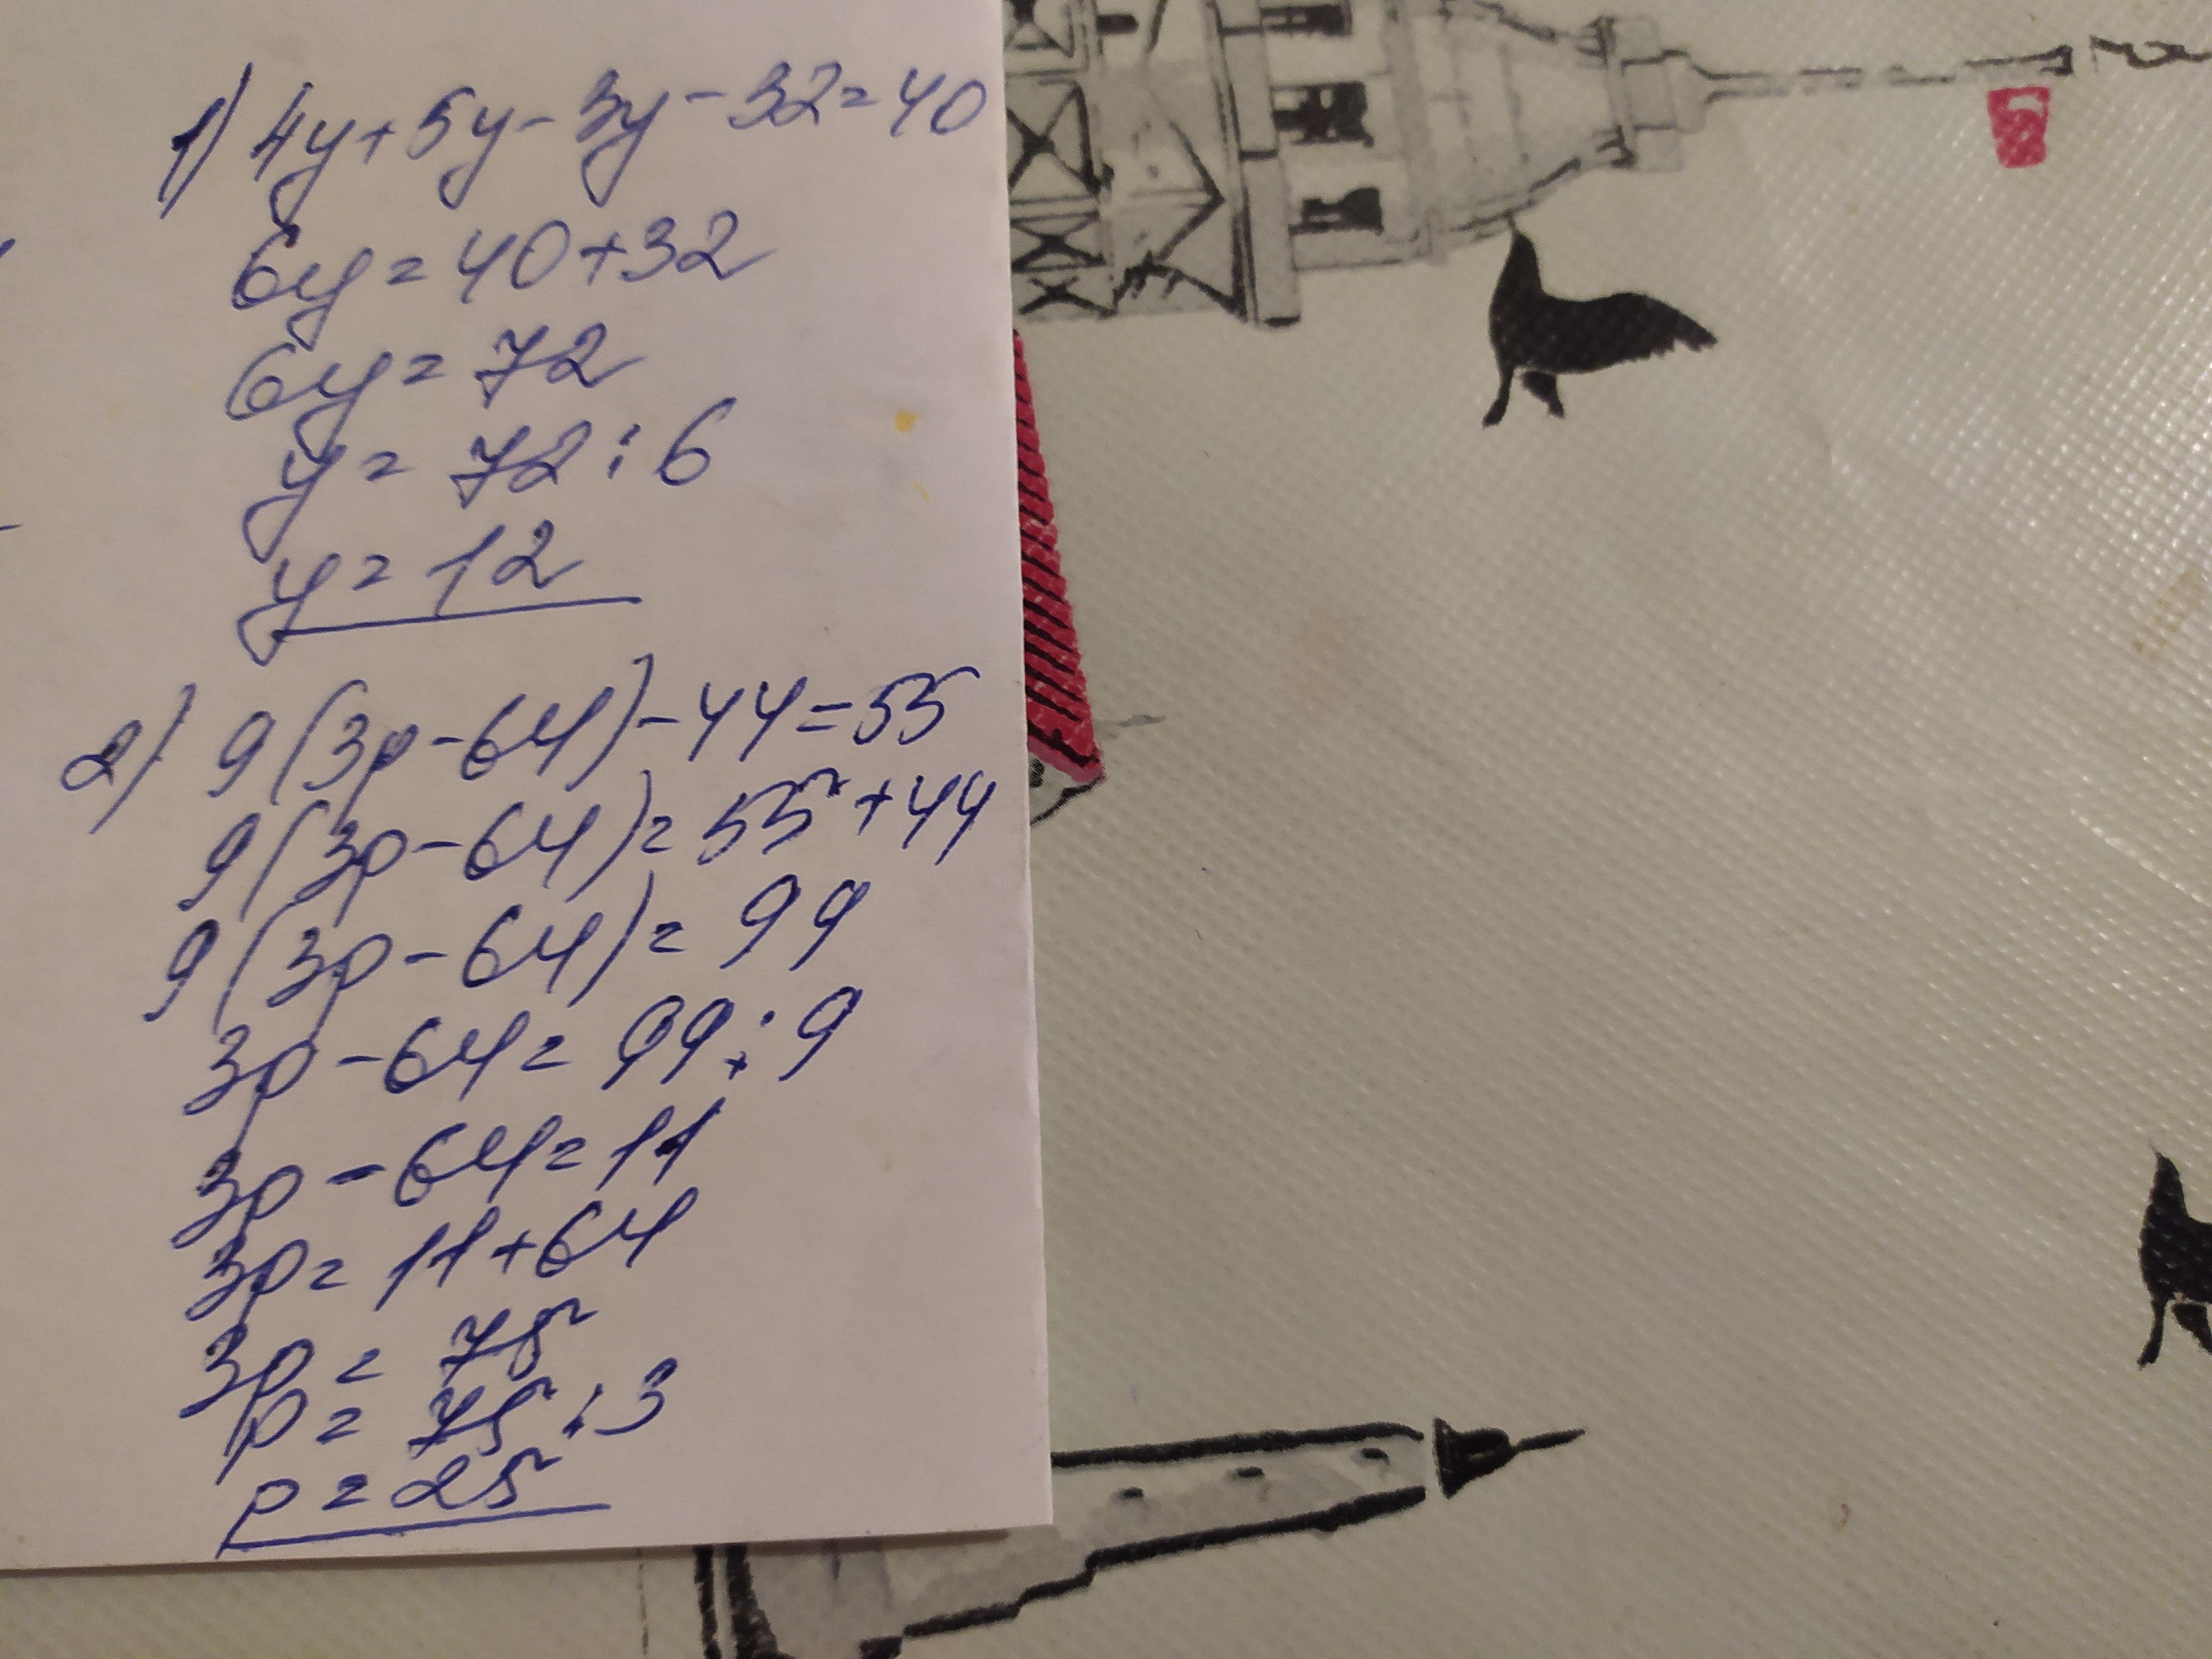 1) 4y+5y-3y-32=40
6y=40+32
6y=72
y=72:6
y=12
2) 9(3p-64)-44=55
9(3p-64)=55+44
9(3p-64)=99
3p-64=99:9
3p-64=11
3p=11+64
3p=75
p=75:3
p=25